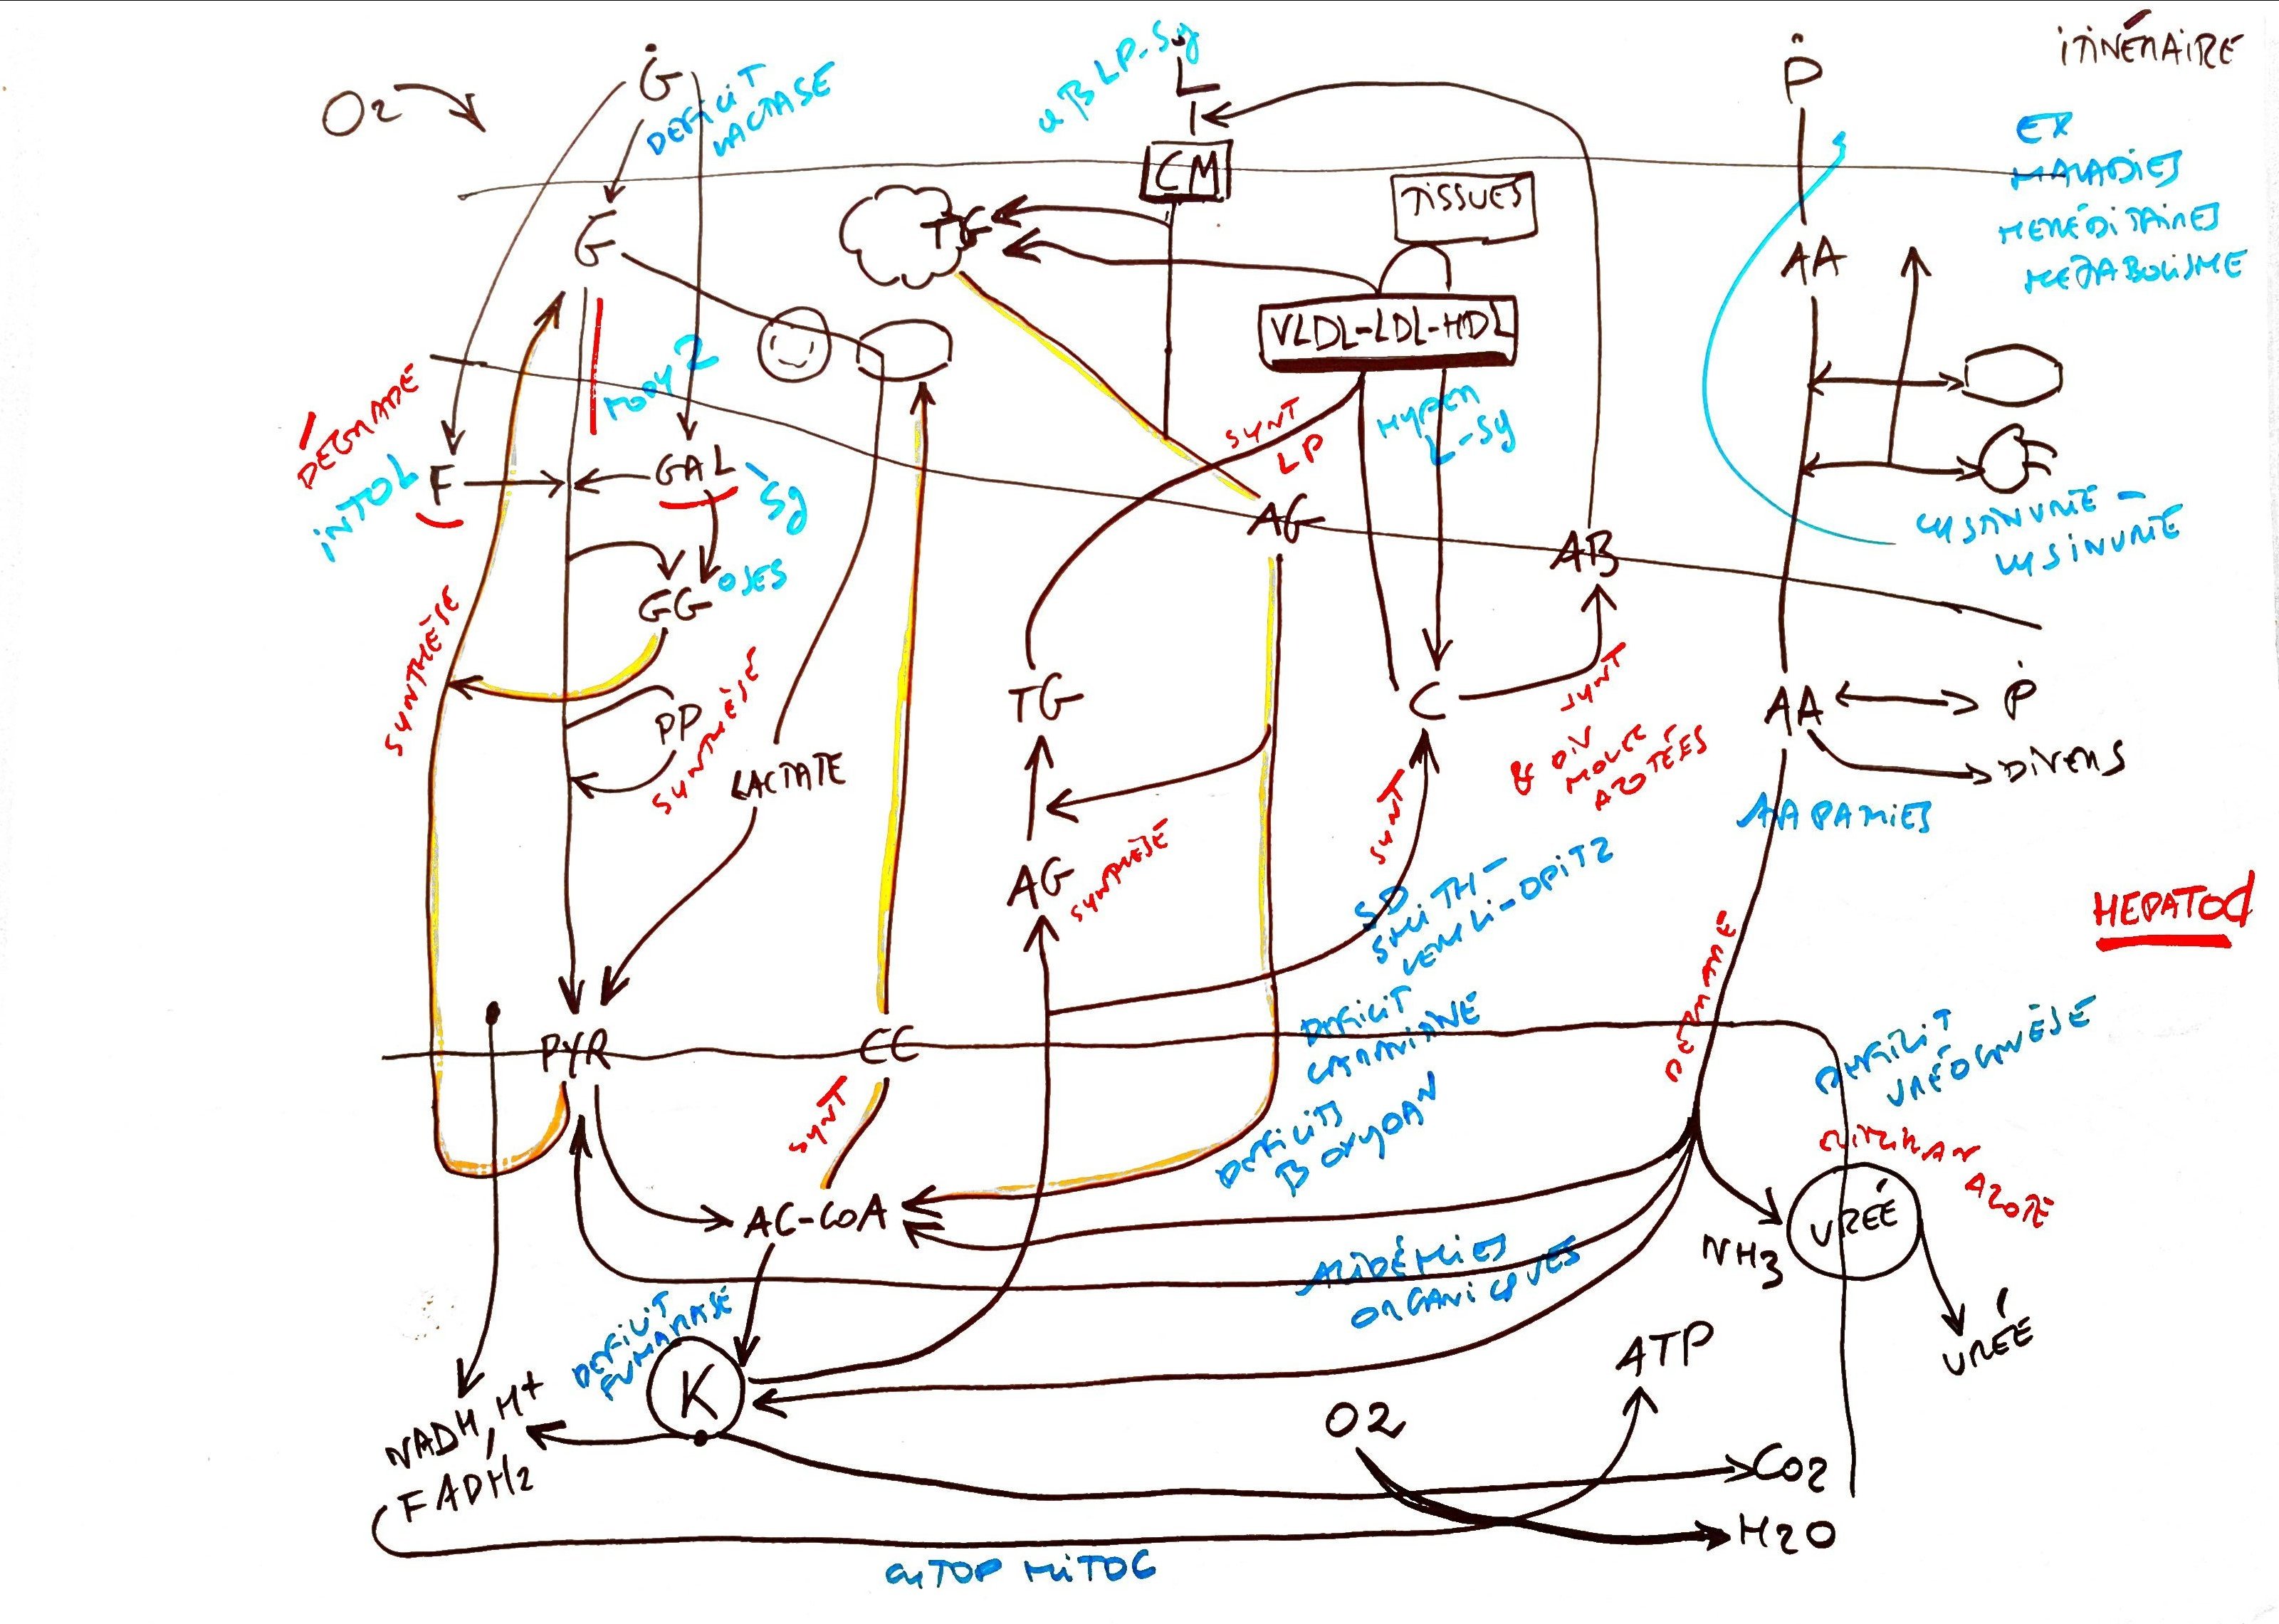 ITINÉRAIRE
O2
G
DEFICIT
LACTASE
αβLP-Sy
L
P
EX
MALADIES
HÉRÉDITAIRES
METABOLISME
CM
TISSUES
G
TG
AA
VLDL-LDL-HDL
MODY 2
DÉGRADE
INTOL
F
GAL
Sy
SYNT
LP
HYPER
L-Sy
AG
AB
CYSTINURIE -
LYSINURIE
GG
OSES
SYNTHÈSE
PP
SYNTHÈSE
LACTATE
TG
C
SYNT
& DIV
MOLEC
AZOTÉES
AA
P
DIVERS
AAPATHIES
AG
SYNTHÈSE
SYNT
SD
SMITH-
LEMLI-OPITZ
HEPATOC
DÉGRADE
PYR
CC
DEFICIT
CARNITINE
DEFICIT
URÉOGENÈSE
SYNT
DEFICITS
B OXYDAN
ELIMINAN
AZOTE
AC-COA
NH3
URÉE
URÉE
ACIDÉMIES
ORGANIQUES
DEFICIT
FUMARASE
K
ATP
NADH, H+
FADH2
O2
CO2
H2O
CYTOP MITOC